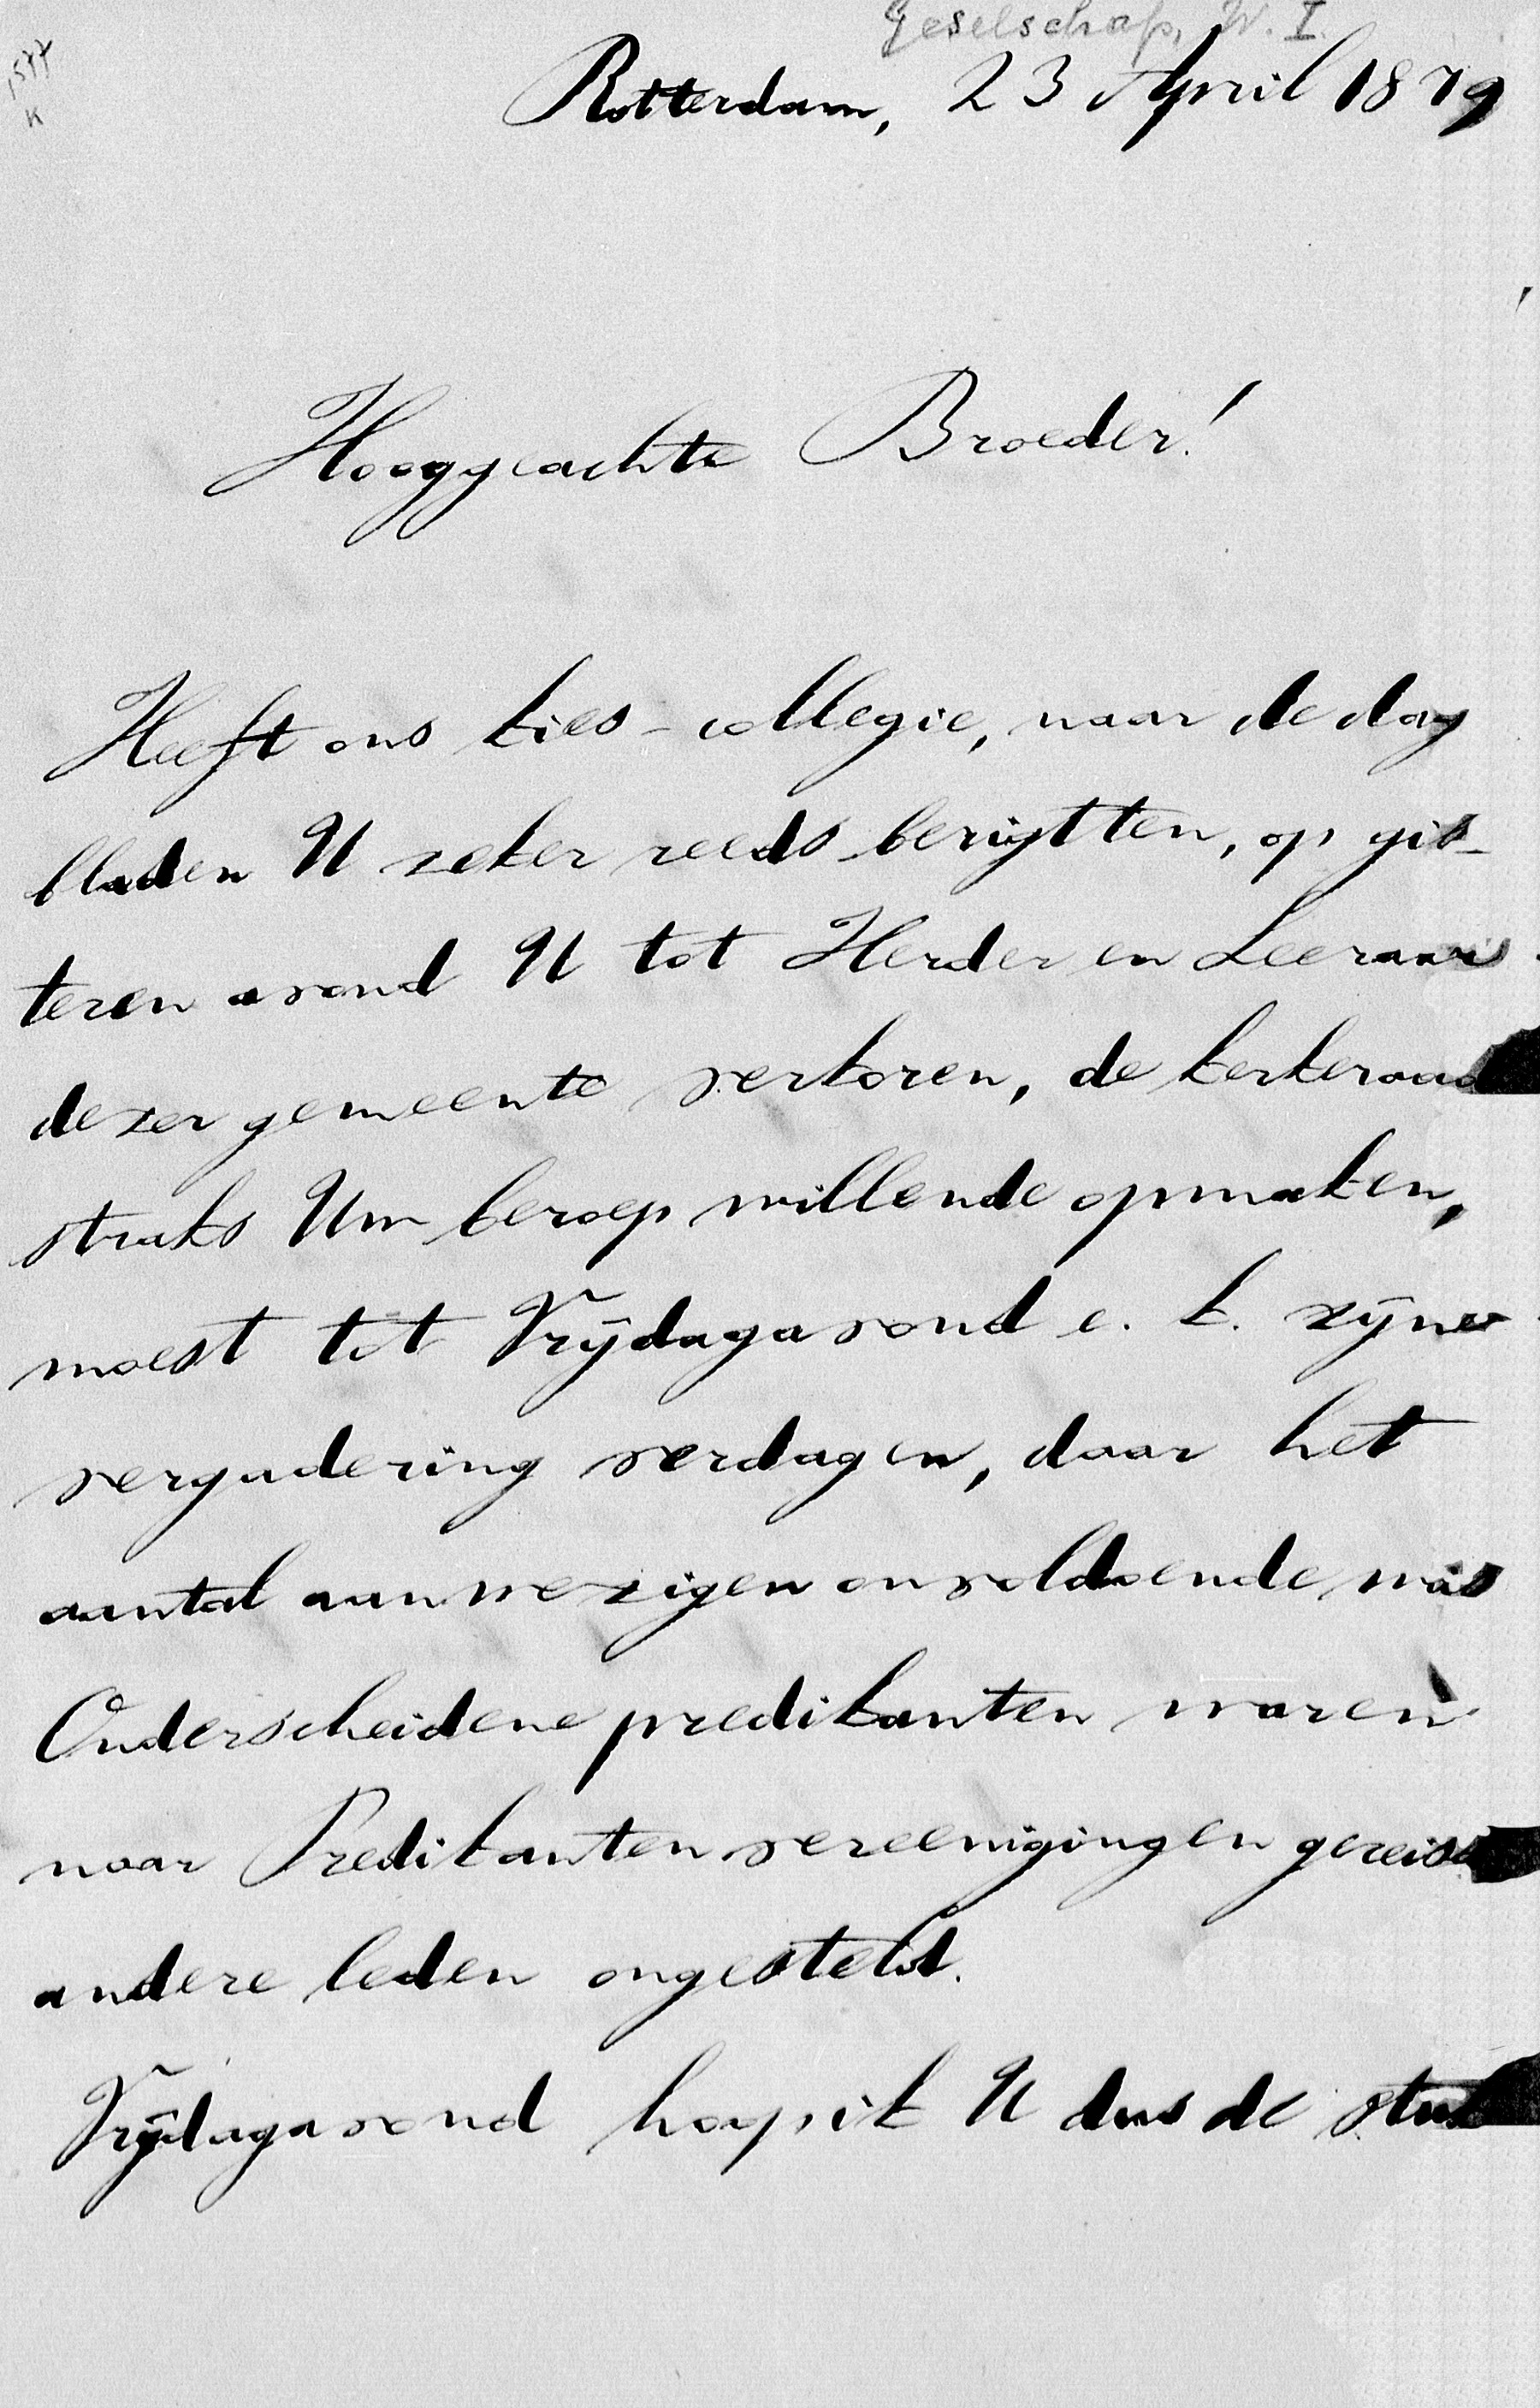 Geselschap, W. I.
1577
K
Rotterdam, 23 April 1879
Hooggeachte Broeder!
Heeft ons kies-collegie, naar de dag
bladen U zeker reeds berigtten, op gis-
teren avond U tot Herder en Leeraar
dezer gemeente verkoren, de kerkeraad
straks Uw beroep willende opmaken,
moest tot Vrijdagavond e. k. zijne
vergadering verdagen, daar het
aantal aanwezigen onvoldoende was
Onderscheidene predikanten waren
naar Predikantenvereenigingen gereisd
andere leden ongesteld.
Vrijdagavond hoop ik U dus de